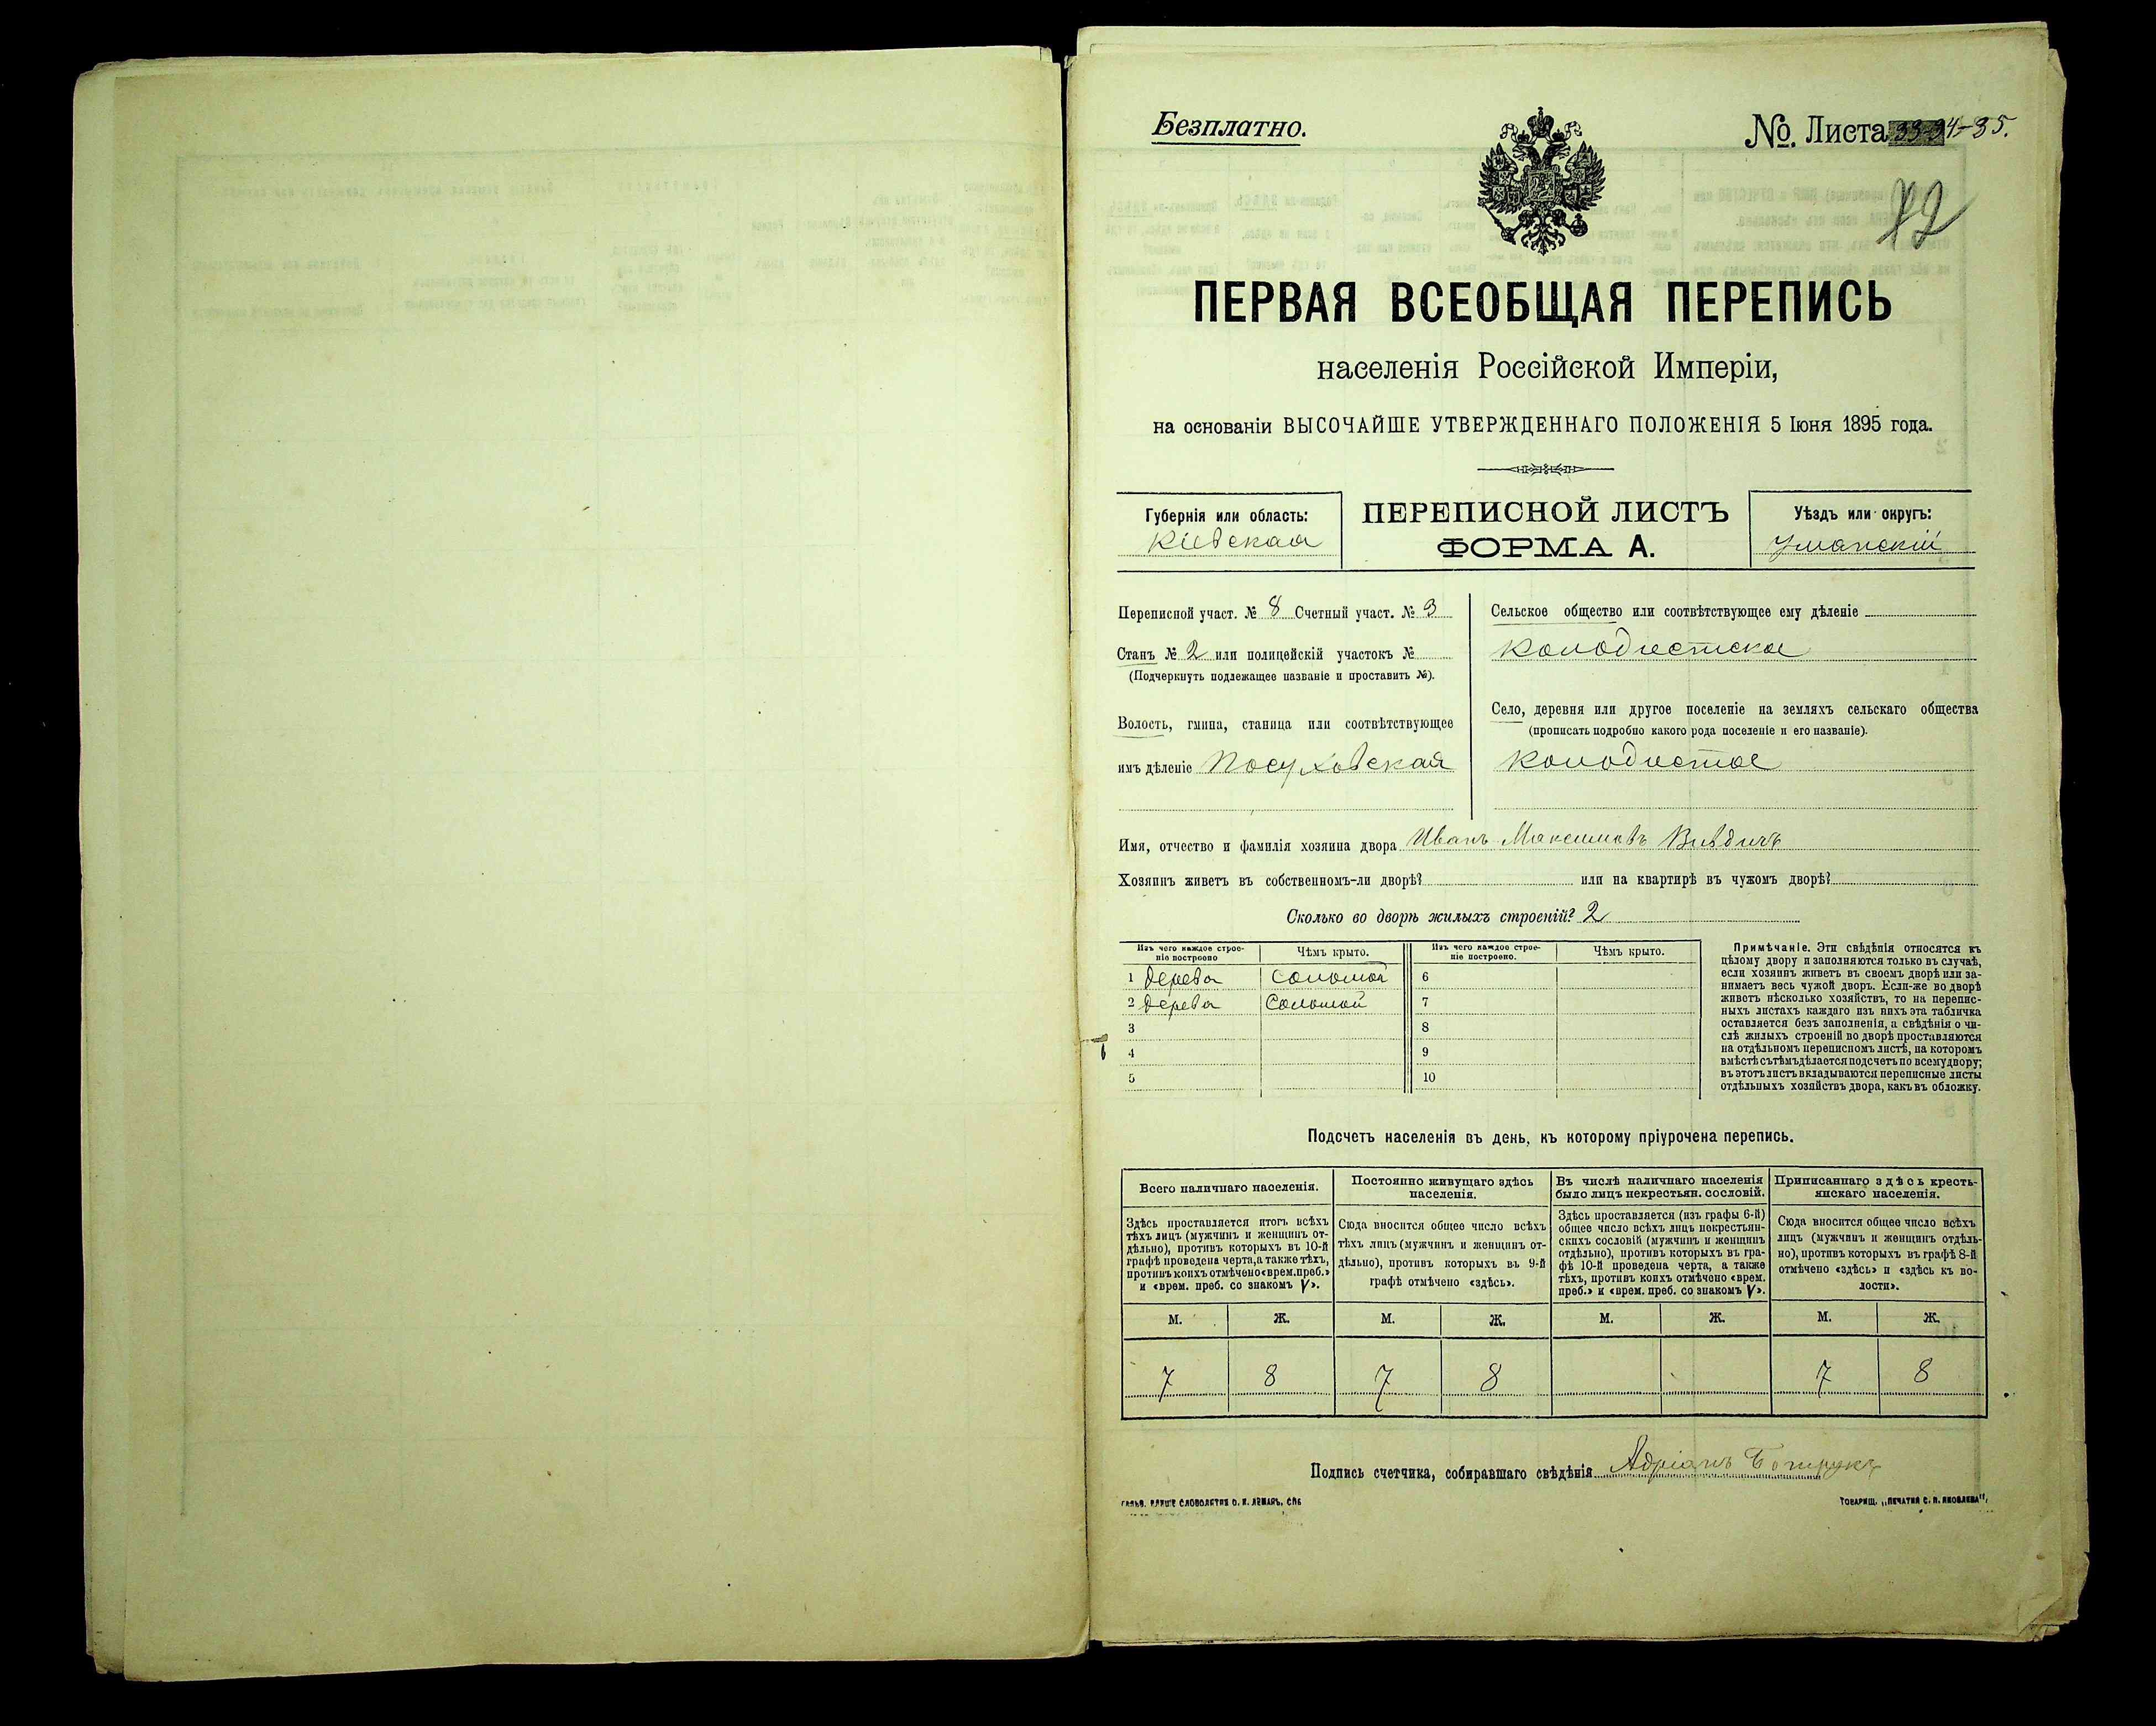 Безплатно.
№. Листа 33-34-35.
ПЕРВАЯ ВСЕОБЩАЯ ПЕРЕПИСЬ
населенія Россійской Имперіи,
на основаніи ВЫСОЧАЙШЕ УТВЕРЖДЕННАГО ПОЛОЖЕНІЯ 5 Іюня 1895 года.
Губернія или область:
Кіевская
ПЕРЕПИСНОЙ ЛИСТЪ
ФОРМА А.
Уѣздъ или округъ:
Уманскій
Переписной участ. № 8 Счетный участ. № 3
Станъ № 2 или полицейскій участокъ №
(Подчеркнуть подлежащее названіе и проставить №).
Волость, гмина, станица или соотвѣтствующее
имъ дѣленіе Посуховская
Сельское общество или соотвѣтствующее ему дѣленіе
Колодистское
Село, деревня или другое поселеніе на земляхъ сельскаго общества
(прописать подробно какого рода поселеніе и его названіе).
Колодистое
Имя, отчество и фамилія хозяина двора Иванъ Максимовъ
Хозяинъ живетъ въ собственномъ-ли дворѣ? или на квартирѣ въ чужомъ дворѣ?
Сколько во дворѣ жилыхъ строеній? 2
Изъ чего каждое строеніе построено
Чѣмъ крыто.
Изъ чего каждое строеніе построено.
Чѣмъ крыто.
1 Дерева Соломой 6
2 Дерева Соломой 7
3 8
4 9
5 10
Примѣчаніе. Эти свѣдѣнія относятся къ
цѣлому двору и заполняются только въ случаѣ,
если хозяинъ живетъ въ своемъ дворѣ или за-
нимаетъ весь чужой дворъ. Если-же во дворѣ
живетъ нѣсколько хозяйствъ, то на перепис-
ныхъ листахъ каждаго изъ нихъ эта табличка
оставляется безъ заполненія, а свѣдѣнія о чи-
слѣ жилыхъ строеній во дворѣ проставляются
на отдѣльномъ переписномъ листѣ, на которомъ
вмѣстѣ съ тѣмъ дѣлается подсчетъ по всему двору;
въ этотъ листъ вкладываются переписные листы
отдѣльныхъ хозяйствъ двора, какъ въ обложку.
Подсчетъ населенія въ день, къ которому пріурочена перепись.
Всего наличнаго населенія.
Постоянно живущаго здѣсь
населенія.
Въ числѣ наличнаго населенія
было лицъ некрестьян. сословій.
Приписаннаго здѣсь кресть-
янскаго населенія.
Здѣсь проставляется итогъ всѣхъ
тѣхъ лицъ (мужчинъ и женщинъ от-
дѣльно), противъ которыхъ въ 10-й
графѣ проведена черта, а также тѣхъ,
противъ коихъ отмѣчено «врем. преб.»
и «врем. преб. со знакомъ V».
Сюда вносится общее число всѣхъ
тѣхъ лицъ (мужчинъ и женщинъ от-
дѣльно), противъ которыхъ въ 9-й
графѣ отмѣчено «здѣсь».
Здѣсь проставляется (изъ графы 6-й)
общее число всѣхъ лицъ некрестьян-
скихъ сословій (мужчинъ и женщинъ
отдѣльно), противъ которыхъ въ гра-
фѣ 10-й проведена черта, а также
тѣхъ, противъ коихъ отмѣчено «врем.
преб.» и «врем. преб. со знакомъ V».
Сюда вносится общее число всѣхъ
лицъ (мужчинъ и женщинъ отдѣль-
но), противъ которыхъ въ графѣ 8-й
отмѣчено «здѣсь» и «здѣсь къ во-
лости».
М. Ж. М. Ж. М. Ж. М. Ж.
7 8 7 8 7 8
Подпись счетчика, собиравшаго свѣдѣнія Адріанъ
ТОВАРИЩ. „ПЕЧАТНЯ С. П. ЯКОВЛЕВА“.